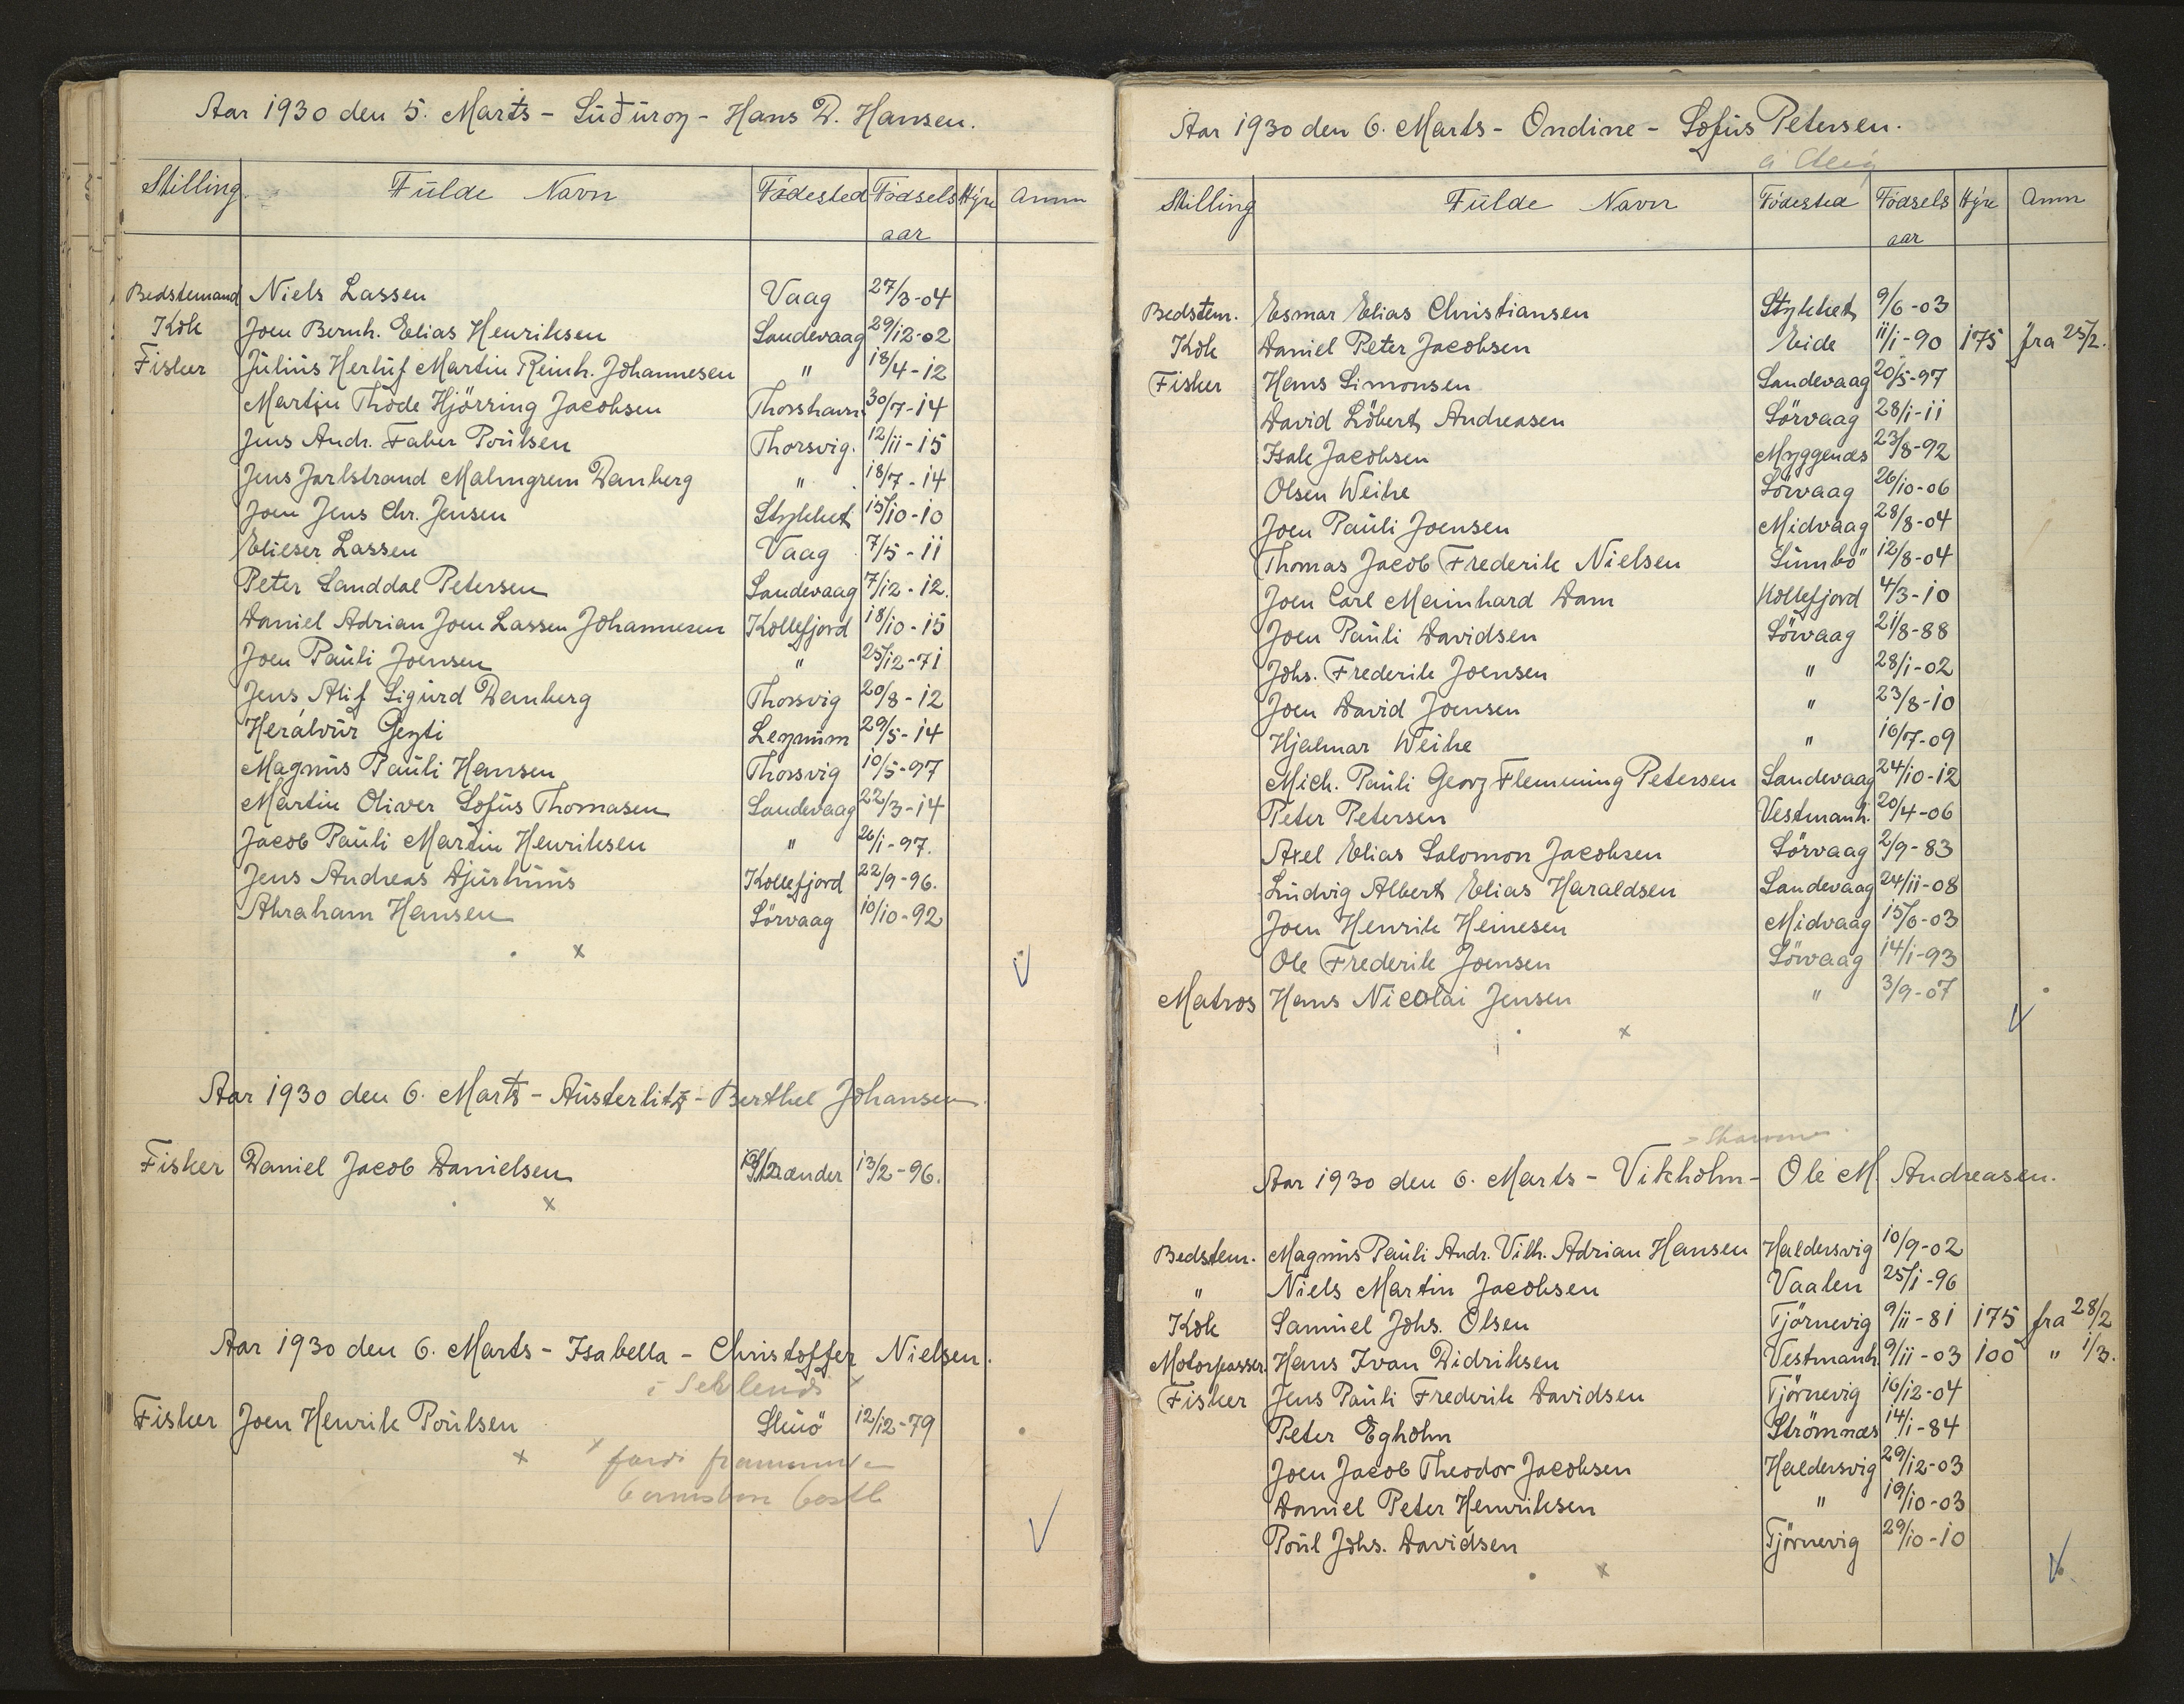 Aar 1930 den 5. Marts - Suðuroy - Hans D. Hansen.
Stilling Fulde Navn Födested Födsels Hyre Anm
aar
Bedstemand Niels Lassen Vaag 27/3-04
Kok Joen Bernh. Elias Henriksen Sandevaag 29/12-02
Fisker Julius Herluf Martin Reinh. Johannesen " 18/4-12
Martin Thode Hjörring Jacobsen Thorshavn 30/7-14
Jens Andr. Faber Poulsen Thorsvig. 12/11-15
Jens Jarlstrand Malmgrem Danberg " 18/7-14
Joen Jens Chr. Jensen Stykket 15/10-10
Elieser Lassen Vaag 7/5-11
Peter Sanddal Petersen Sandevaag 7/12-12.
Daniel Adrian Joen Lassen Johannesen Kollefjord 18/10-15
Joen Pauli Joensen " 25/12-71
Jens Alif Sigurd Danberg Thorsvig 20/8-12
Herálvur Geyti Leynum 29/5-14
Magnus Pauli Hansen Thorsvig 10/5-97
Martin Oliver Sofus Thomasen Sandevaag 22/3-14
Jacob Pauli Martin Henriksen " 26/1-97.
Jens Andreas Djurhuus Kollefjord 22/9-96.
Abraham Hansen Sörvaag 10/10-92
x
Aar 1930 den 6. Marts - Austerlitz - Berthel Johansen.
Fisker Daniel Jacob Danielsen Strænder 13/2-96.
x
Aar 1930 den 6. Marts - Isabella - Christoffer Nielsen.
i
Fisker Joen Henrik Poulsen Skuö 12/12-79
x
Aar 1930 den 6. Marts - Ondine - Sofus Petersen.
Stilling Fulde Navn Födested Födsels Hyre Anm
aar
Bedstem. Esmar Elias Christiansen Stykket 9/6-03
Kok Daniel Peter Jacobsen Eide 11/1-90 175 fra 25/2.
Fisker Hans Simonsen Sandevaag 20/5-97
David Löbert Andreasen Sörvaag 28/1-11
Isak Jacobsen Myggenæs 23/8-92
Olsen Weihe Sörvaag 26/10-06
Joen Pauli Joensen Midvaag 28/8-04
Thomas Jacob Frederik Nielsen Sumbö 12/8-04
Joen Carl Meinhard Dam Kollefjord 4/3-10
Joen Pauli Davidsen Sörvaag 21/8-88
Johs. Frederik Joensen " 28/1-02
Joen David Joensen " 23/8-10
Hjalmar Weihe " 16/7-09
Mich. Pauli Georg Flemming Petersen Sandevaag 24/10-12
Peter Petersen Vestmanh. 20/4-06
Axel Elias Salomon Jacobsen Sörvaag 2/9-83
Ludvig Albert Elias Haraldsen Sandevaag 24/11-08
Joen Henrik Heinesen Midvaag 15/6-03
Ole Frederik Joensen Sörvaag 14/1-93
Matros Hans Nicolai Jensen " 3/9-07
x
Aar 1930 den 6. Marts - Vikholm - Ole M. Andreasen.
Bedstem. Magnus Pauli Andr. Vilh. Adrian Hansen Haldersvig 10/9-02
" Niels Martin Jacobsen Vaalen 25/1-96
Kok Samuel Johs. Olsen Tjörnevig 9/11-81 175 fra 28/2
Motorpasser. Hans Ivan Didriksen Vestmanh. 9/11-03 100 " 1/3.
Fisker Jens Pauli Frederik Davidsen Tjörnevig 16/12-04
Peter Egholm Strömnæs 14/1-84
Joen Jacob Theodor Jacobsen Haldersvig 29/12-03
Daniel Peter Henriksen " 19/10-03
Poul Johs. Davidsen Tjörnevig 29/10-10
x